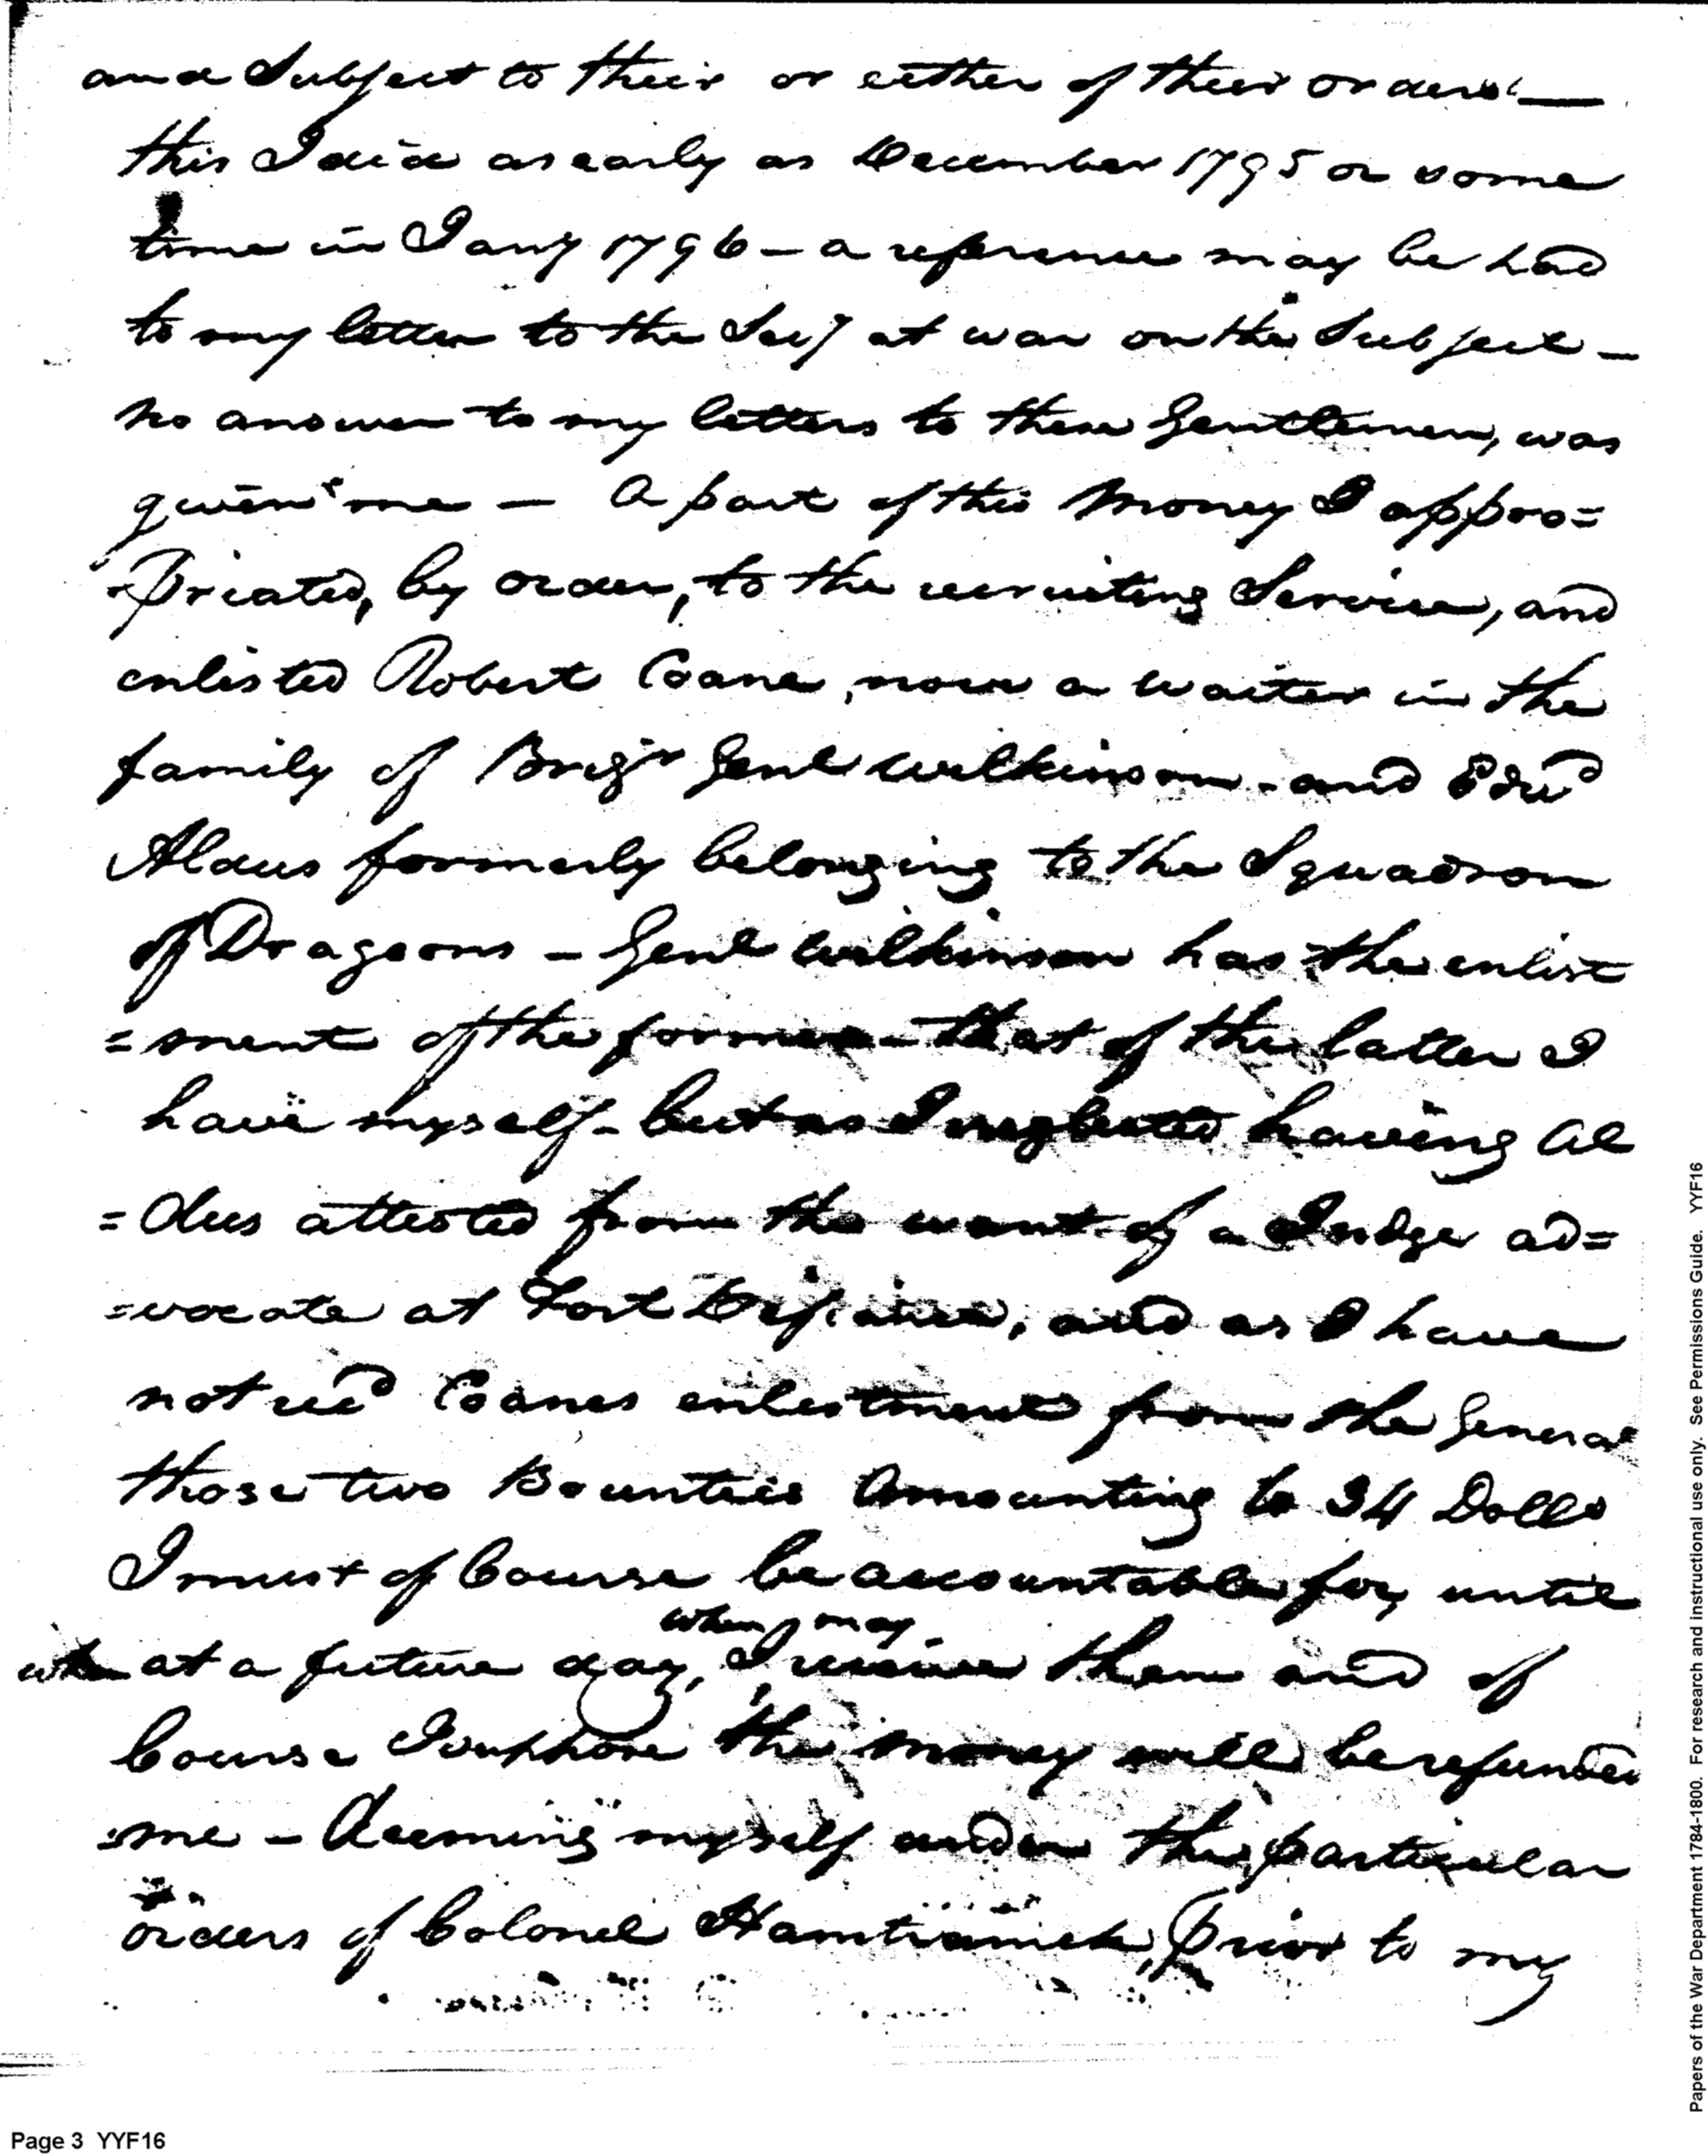 and Subject to their or either of their orders —
this I did as early as December 1795 or some
time in Jany 1796 — a reference may be had
to my letter to the Secy at war on the Subject —
no answer to my letters to these Gentlemen, was
given me — A part of this Money I appro=
=priated, by order, to the recruiting Service, and
enlisted Robert Coane, now a waiter in the
family of Brigr Genl Wilkinson - and Edwd
Aldus formerly belonging to the Squadron
of Dragoons — Genl Wilkinson has the enlist
=ment of the former - that of the latter I
have myself - but as I neglected having Al
=dus attested from the want of a Judge ad=
=vocate at Fort Defiance, and as I have
not recd Coanes enlistment from the General
those two Bounties Amounting to 34 Dolls
I must of Course be accountable for, until
when may
at a future day, I receive them and of
Course I suppose the money will be refunded
me — Deeming myself under the particular
orders of Colonel Hamtramck, prior to my
Page 3 YYF16
Papers of the War Department 1784-1800. For research and instructional use only. See Permissions Guide. YYF16